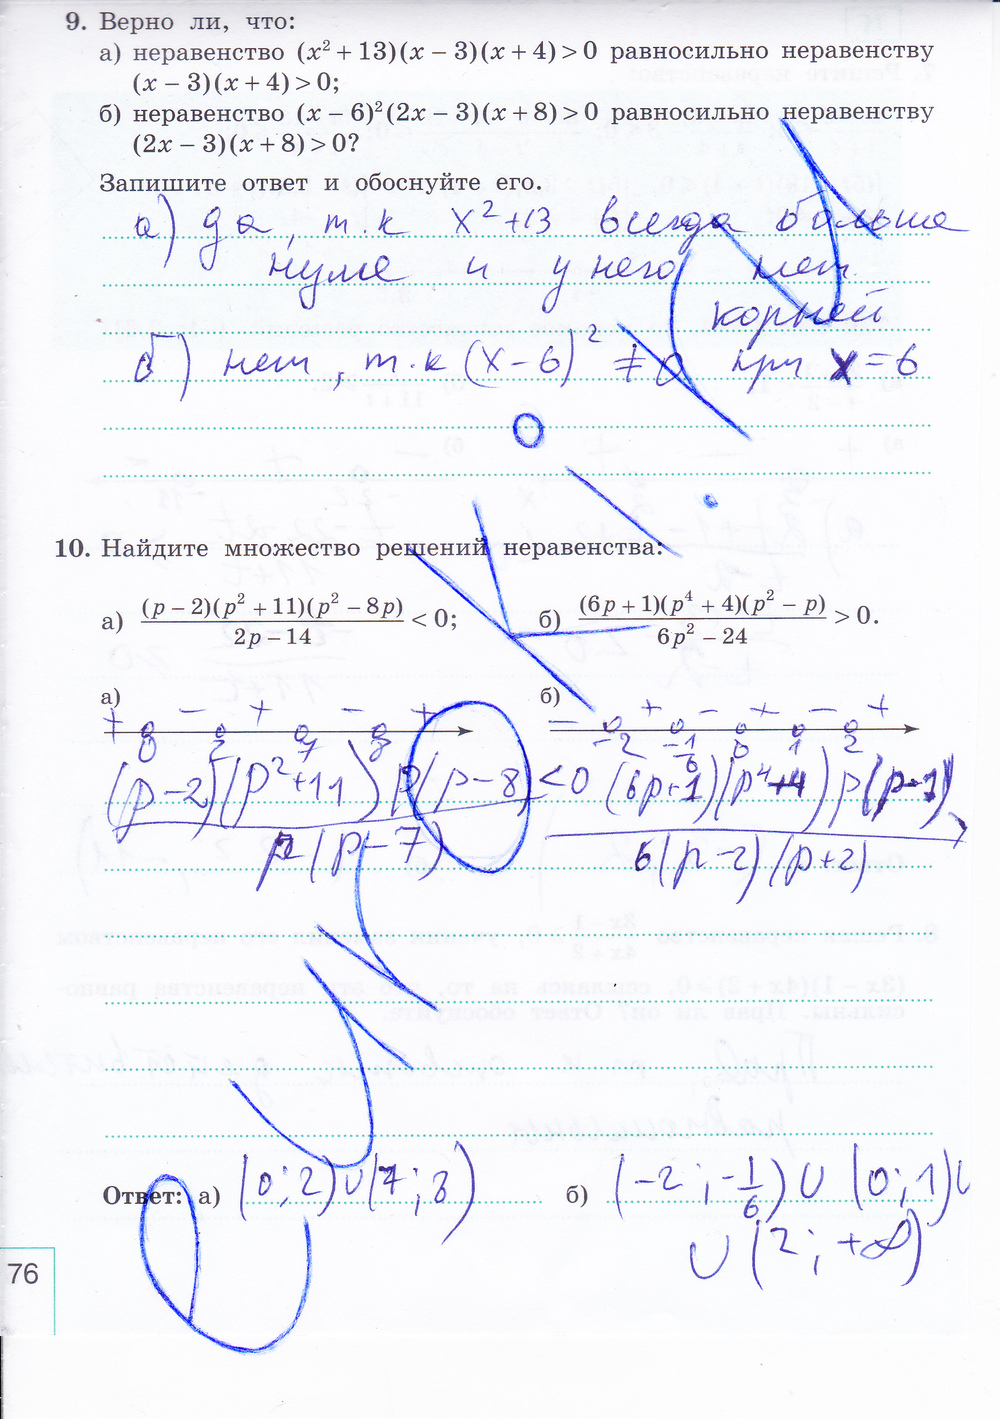 9. Верно ли, что:
а) неравенство (x² + 13)(x − 3)(x + 4) > 0 равносильно неравенству
(x − 3)(x + 4) > 0;
б) неравенство (x − 6)²(2x − 3)(x + 8) > 0 равносильно неравенству
(2x − 3)(x + 8) > 0?
Запишите ответ и обоснуйте его.
а) да, т.к x²+13 всегда больше
нуля и у него нет
корней
б) нет, т.к (x−6)² ≠ 0 при x=6
10. Найдите множество решений неравенства:
а) (p − 2)(p² + 11)(p² − 8p) / (2p − 14) < 0; б) (6p + 1)(p⁴ + 4)(p² − p) / (6p² − 24) > 0.
а) б)
+ − + − + − + − + − +
0 2 7 8 −2 −1/6 0 1 2
(p−2)(p²+11)p(p−8) / 2(p−7) <0 (6p+1)(p⁴+4)p(p−1) / 6(p−2)(p+2)
Ответ: а) (0;2)∪(7;8) б) (−2;−1/6)∪(0;1)∪
∪(2;+∞)
76